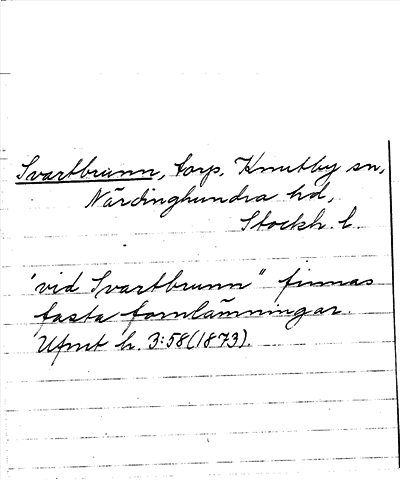 Svartbrunn, torp, Knutby sn,
Närdinghundra hd,
Stockh. l.
"vid Svartbrunn" finnas
fasta fornlämningar.
Ufmt h. 3:58 (1873).